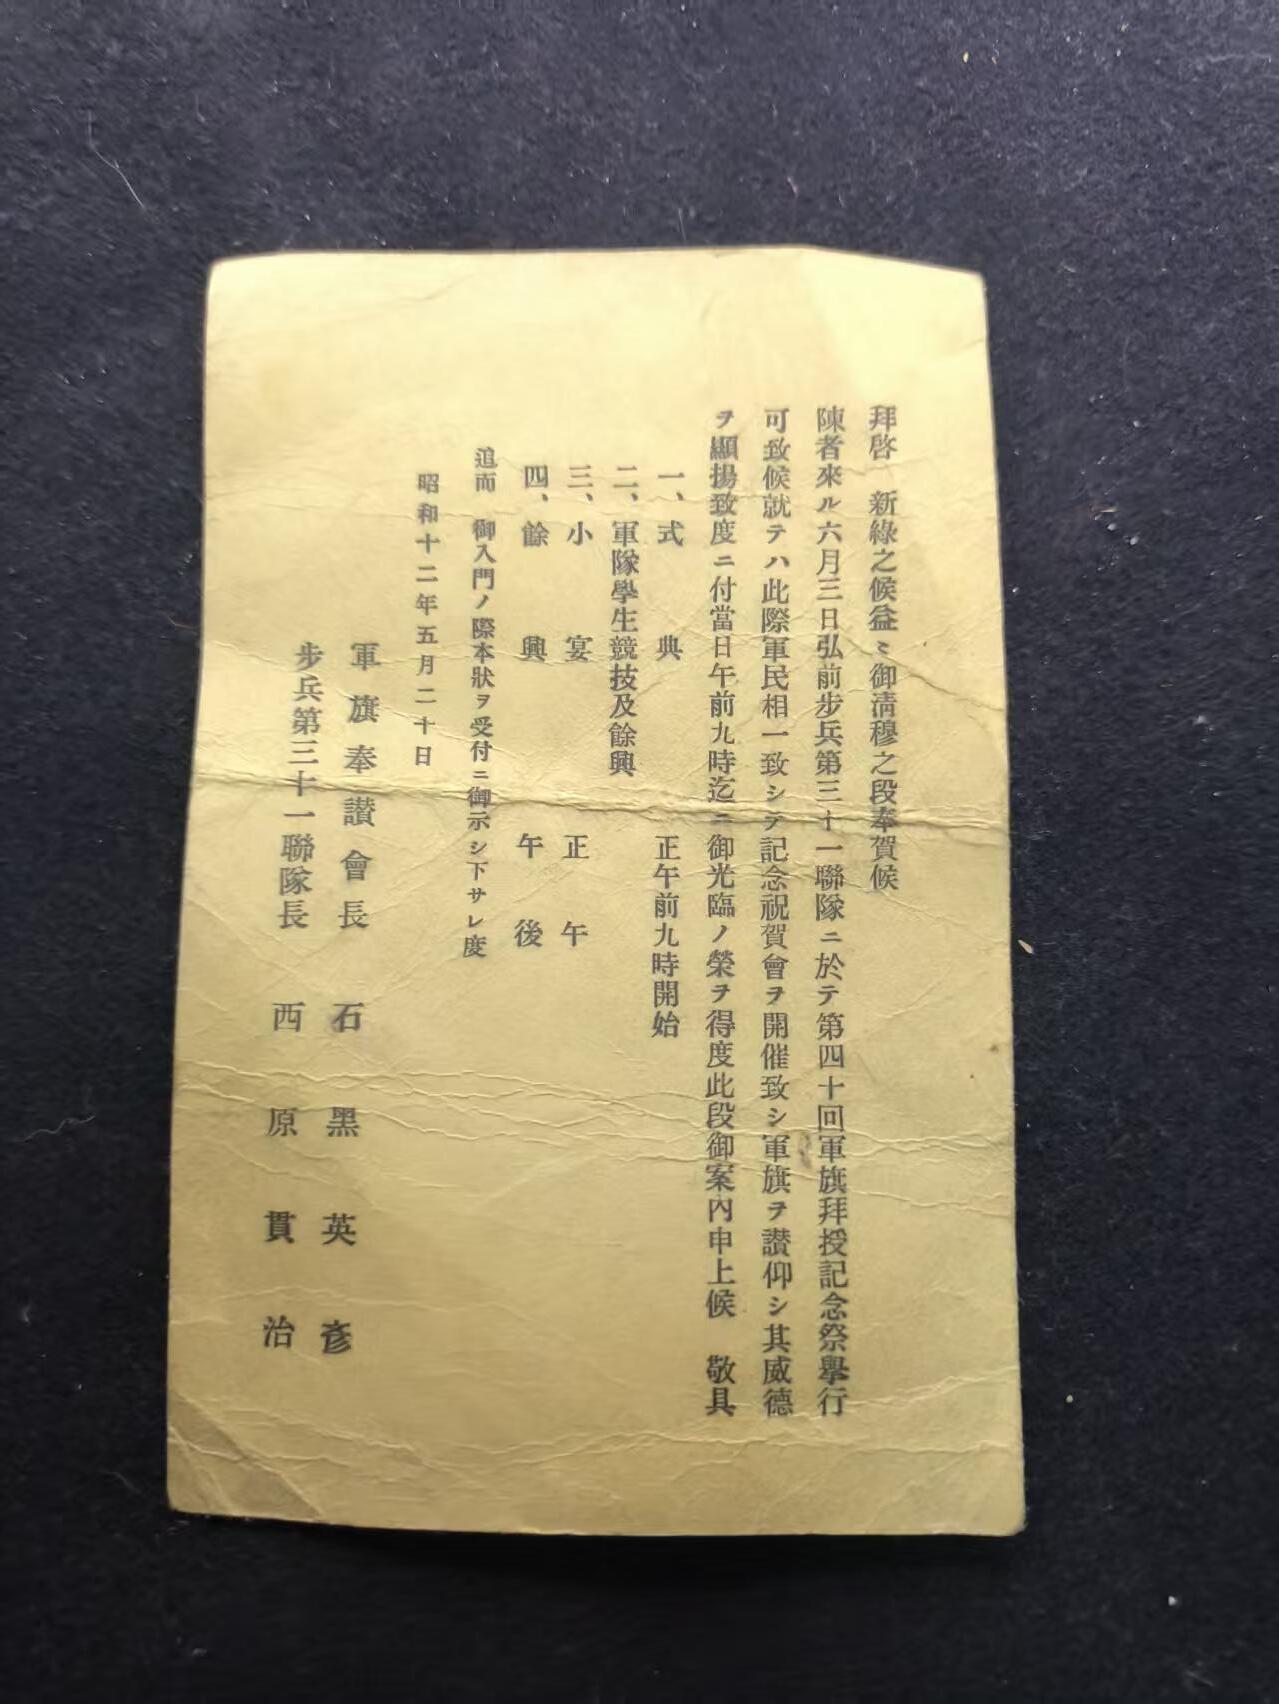 拜啓　新綠之候益〻御淸穆之段奉賀候
陳者來ル六月三日弘前步兵第三十一聯隊ニ於テ第四十回軍旗拜授記念祭擧行
可致候就テハ此際軍民相一致シテ記念祝賀會ヲ開催致シ軍旗ヲ讃仰シ其威德
ヲ顯揚致度ニ付當日午前九時迄ニ御光臨ノ榮ヲ得度此段御案內申上候　敬具
一、式典　正午前九時開始
二、軍隊學生競技及餘興
三、小宴　正午
四、餘興　午後
追而　御入門ノ際本狀ヲ受付ニ御示シ下サレ度
昭和十二年五月二十日
軍旗奉讃會長　石黑英彥
步兵第三十一聯隊長　西原貫治